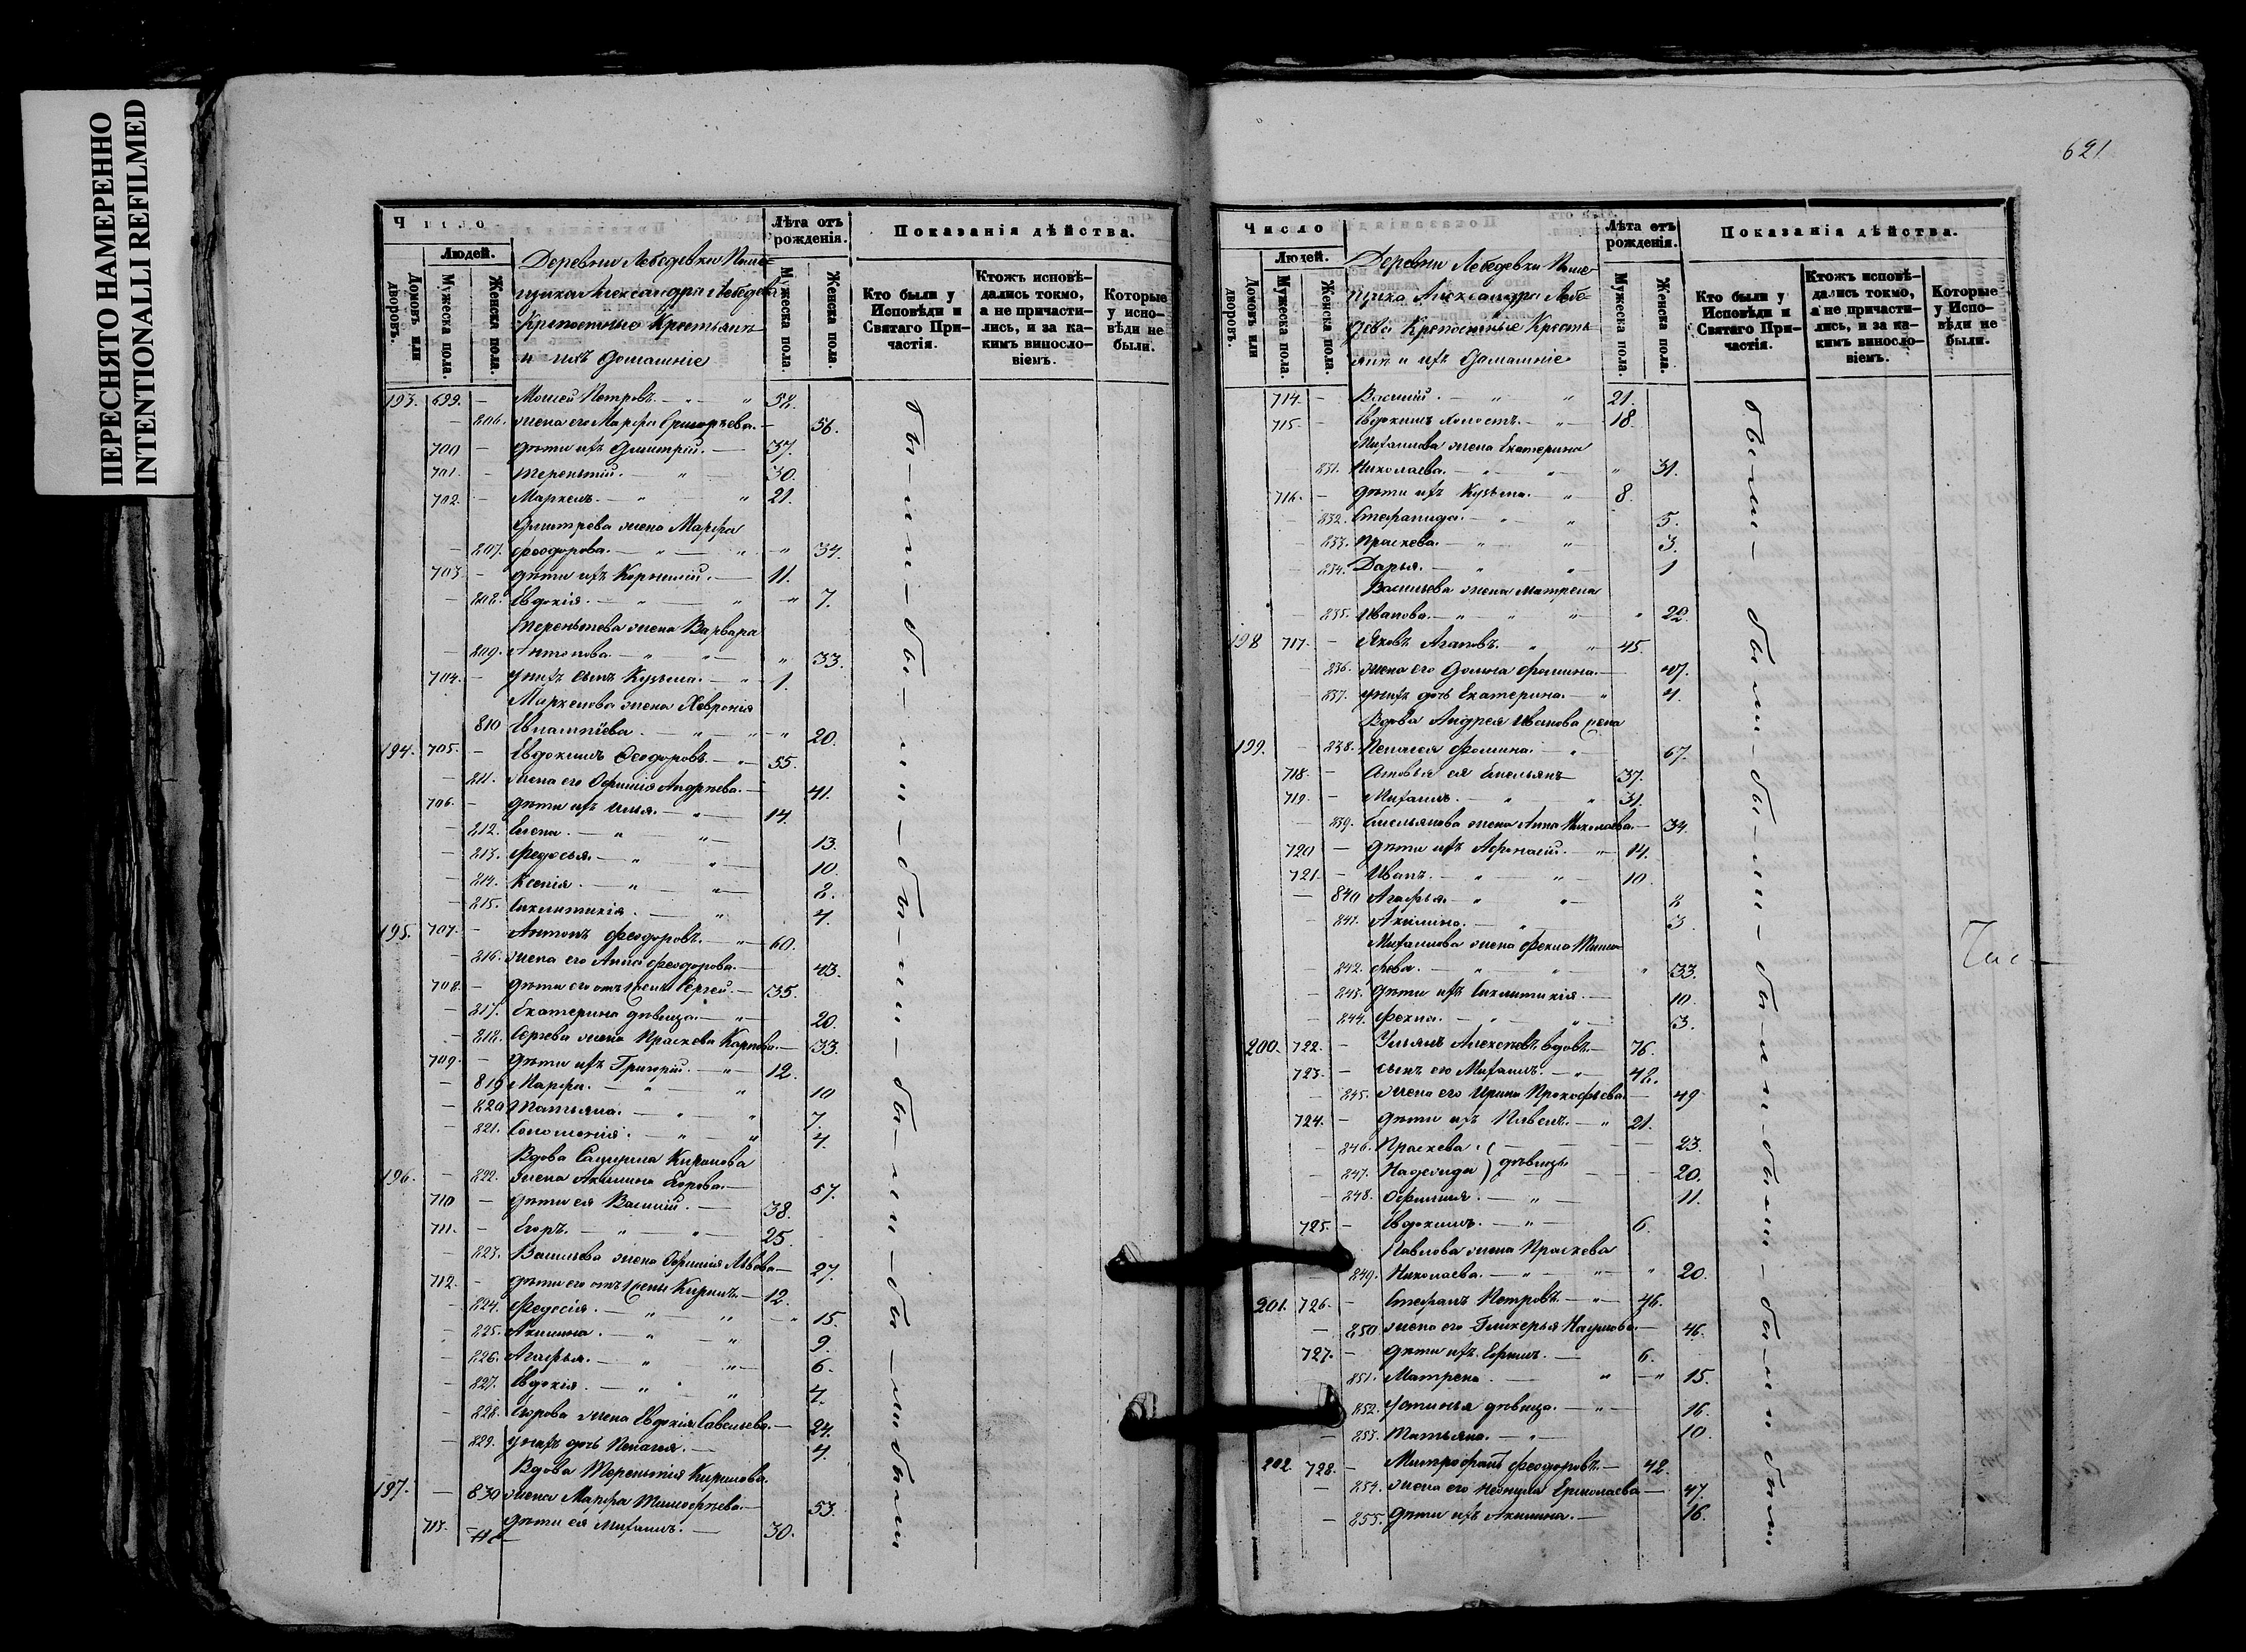 ПЕРЕСНЯТО НАМЕРЕННО
INTENTIONALLI REFILMED
Число
Людей.
Домовъ или дворовъ.
Мужеска пола.
Женска пола.
Деревни Лебедевки Поме-
щика Александра Лебедева
Крепостные Крестьяне
и ихъ домашніе
Лѣта отъ рожденія.
Мужеска пола.
Женска пола.
Показанія дѣйства.
Кто были у Исповѣди и Святаго Причастія.
Ктожъ исповѣдались токмо, а не причастились, и за какимъ винословіемъ.
Которые у исповѣди не были.
193. 699. – Моисей Петровъ. 58.
806. жена его Марфа Григорьева. 56.
700 – дѣти ихъ Дмитрій. 37.
701. – Терентій. 30.
702. – Маркелъ. 21.
Дмитрева жена Марфа
807. Феодорова. 34.
703 – дѣти ихъ Корнилій. 11.
808. Евдокія. 7.
Терентьева жена Варвара
809. Антонова. 33.
704. – у нихъ сынъ Кузьма. 1.
Маркелова жена Хевронія
810 Евпатіева. 20.
194. 705. – Евдокимъ Феодоровъ. 55.
811. жена его Офимія Андрѣева. 41.
706. – дѣти ихъ Илья. 14.
812. Елена. 13.
813. Федосья. 10.
814. Ксенія. 8.
815. Сиклитикія. 4.
195. 707. – Антонъ Феодоровъ. 60.
816. жена его Анна Феодорова. 43.
708. – дѣти его отъ 1 жены Сергей. 35.
817. Екатерина дѣвица. 20.
818. Сергѣева жена Праскева Карпова. 33.
709. – дѣти ихъ Григорій. 12.
819 Марфа. 10
820 Татьяна. 7.
821. Соломонія. 4.
Вдова Кирилова
196. – 822. жена Акилина Егорова. 57.
710 – дѣти ея Василій. 38.
711. – Егоръ. 25.
823. Васильева жена Офимія Львова 27.
712. – дѣти его отъ 1 жены Кирилъ. 12.
824. Федосія. 15.
825. Акилина. 9.
826. Агафья. 6.
827. Евдокія. 4.
828. Егорова жена Евдокія Савельева. 24.
829. у нихъ дочь Пелагея. 4.
Вдова Терентія Кирилова
197. – 830 жена Марфа Тимофѣева. 53.
713. дѣти ея Михаилъ. 30.
были – были – были – были – были – были – были
621
Число
Людей.
Домовъ или дворовъ.
Мужеска пола.
Женска пола.
Деревни Лебедевки Поме-
щика Александра Лебе-
дева Крепостные Кресть-
яне и ихъ домашніе
Лѣта отъ рожденія.
Мужеска пола.
Женска пола.
Показанія дѣйства.
Кто были у Исповѣди и Святаго Причастія.
Ктожъ исповѣдались токмо, а не причастились, и за какимъ винословіемъ.
Которые у Исповѣди не были.
714. – Василій. 21.
715. – Евдокимъ холостъ. 18.
Михаилова жена Екатерина
831. Николаева. 31.
716. – дѣти ихъ Кузьма. 8.
832. Стефанида. 5.
833. Праскева. 3.
834. Дарья. 1
Васильева жена Матрена
835. Иванова. 22.
198 717. – Яковъ Агаповъ. 45.
836. жена его Домна Фомина. 47.
837. у нихъ дочь Екатерина. 4.
Вдова Андрея Иванова жена
199. – 838. Пелагея Фомина. 67.
718. – Сыновья ея Емельянъ 37.
719. – Михаилъ. 31.
839. Емельянова жена Анна Николаева. 34.
720 – дѣти ихъ Афонасій. 14.
721. – Иванъ. 10.
840 Агафья. 8
841. Акилина. 3.
Михаилова жена Фекла Тимо-
842. фева. 33.
843. дѣти ихъ Сиклитикія. 10.
844. Фекла. 3.
200. 722. – Ульянъ Алексѣевъ вдовъ. 76.
723. – сынъ его Михаилъ. 48.
845. жена его Ирина Прокофьева. 49
724. – дѣти ихъ Павелъ. 21.
846. Праскева 23.
847. Надежда } дѣвицы 20.
848. Офимія. 11.
725. – Евдокимъ. 6.
Павлова жена Праскева
849. Николаева. 20.
201. 726. – Стефанъ Петровъ. 46.
850 жена его Гликерья Наумова. 46.
727. – дѣти ихъ Ефимъ. 6.
851. Матрена. 15.
852. Устинья дѣвица. 16.
853. Татьяна. 10.
202 728. – Митрофанъ Феодоровъ. 42.
854. жена его Неонила Ермолаева 47.
855. дѣти ихъ Акилина. 16.
были – были – были – были – были – были – были